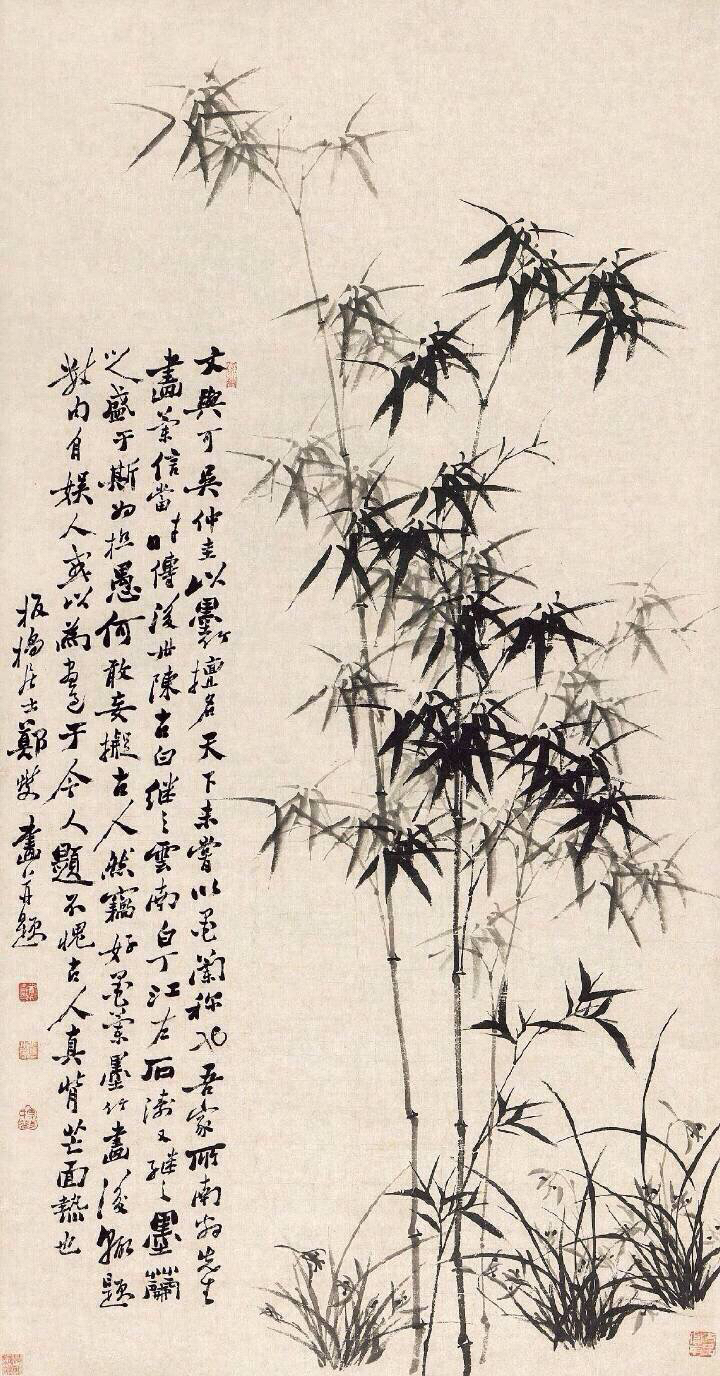 文與可吳仲圭以墨竹擅名天下未嘗以墨蘭稱也吾家所南翁先生
畫蘭信當時傳後世陳古白繼之雲南白丁江左石濤又繼之墨蘭
之盛于斯為極愚何敢妄擬古人然竊好墨蘭墨竹畫後輒題
數內自娛人或以為盡于今人題不愧古人真背芒面熱也
板橋居士鄭燮畫并題